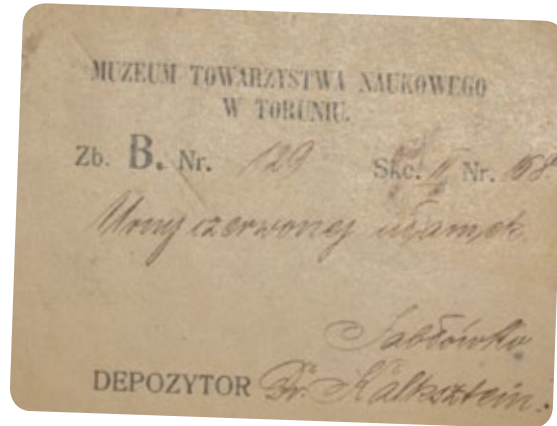 MUZEUM TOWARZYSTWA NAUKOWEGO
W TORUNIU.
Zb. B. Nr. 129 Skc. II Nr. 158
Urny czerwonej ułamek.
Jabłówko
DEPOZYTOR Fr. Kalkstein.